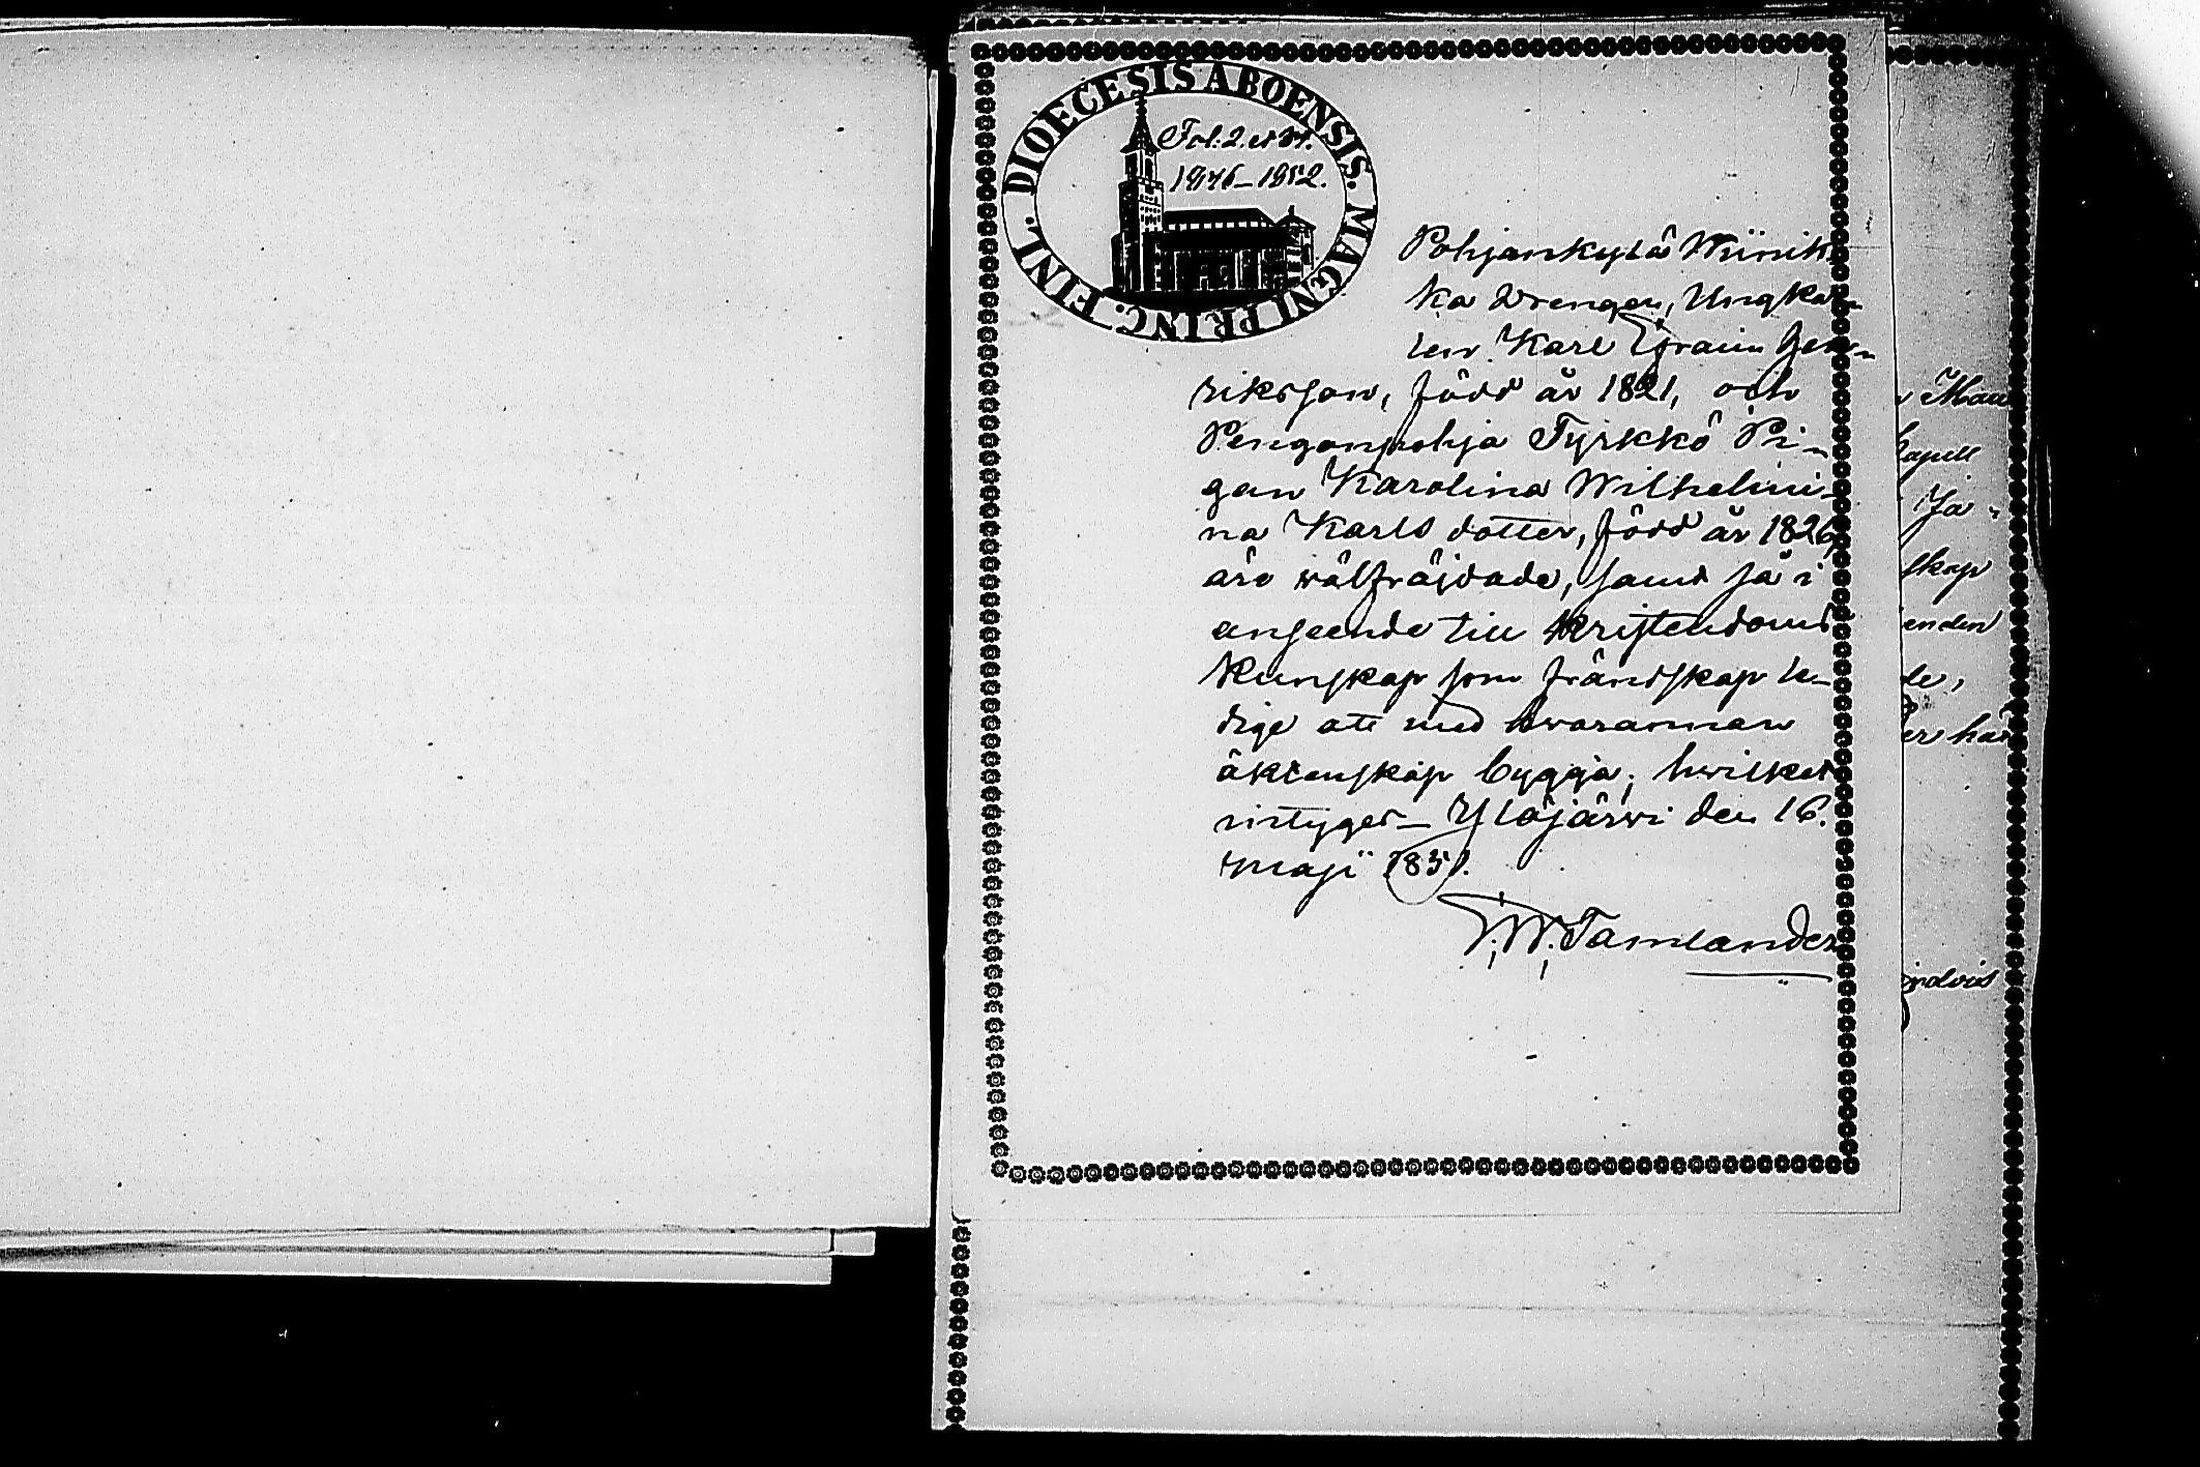 DIOECESIS ABOENSIS. MAGNI PRINC. FINL.
Fol: 2. et
1846–1852.
Pohjankylä Wiinik-
ka Drengen, Ungkar-
len Karl Efraim Hen-
riksson, född år 1821, och
Pengonpohja Tyrkkö Pi-
gan Karolina Wilhelmi-
na Karlsdotter, född år 1826,
äro wälfräjdade, samt så i
anseende till Kristendoms
Kunskap som frändskap le-
dige att med hwarannan
äktenskap bygga; hwilket
intygar_ Ylöjärwi den 16.
maji 1851.
F. W. Tamlander
Mau
kapell
Ja-
skap
enden
de,
er här